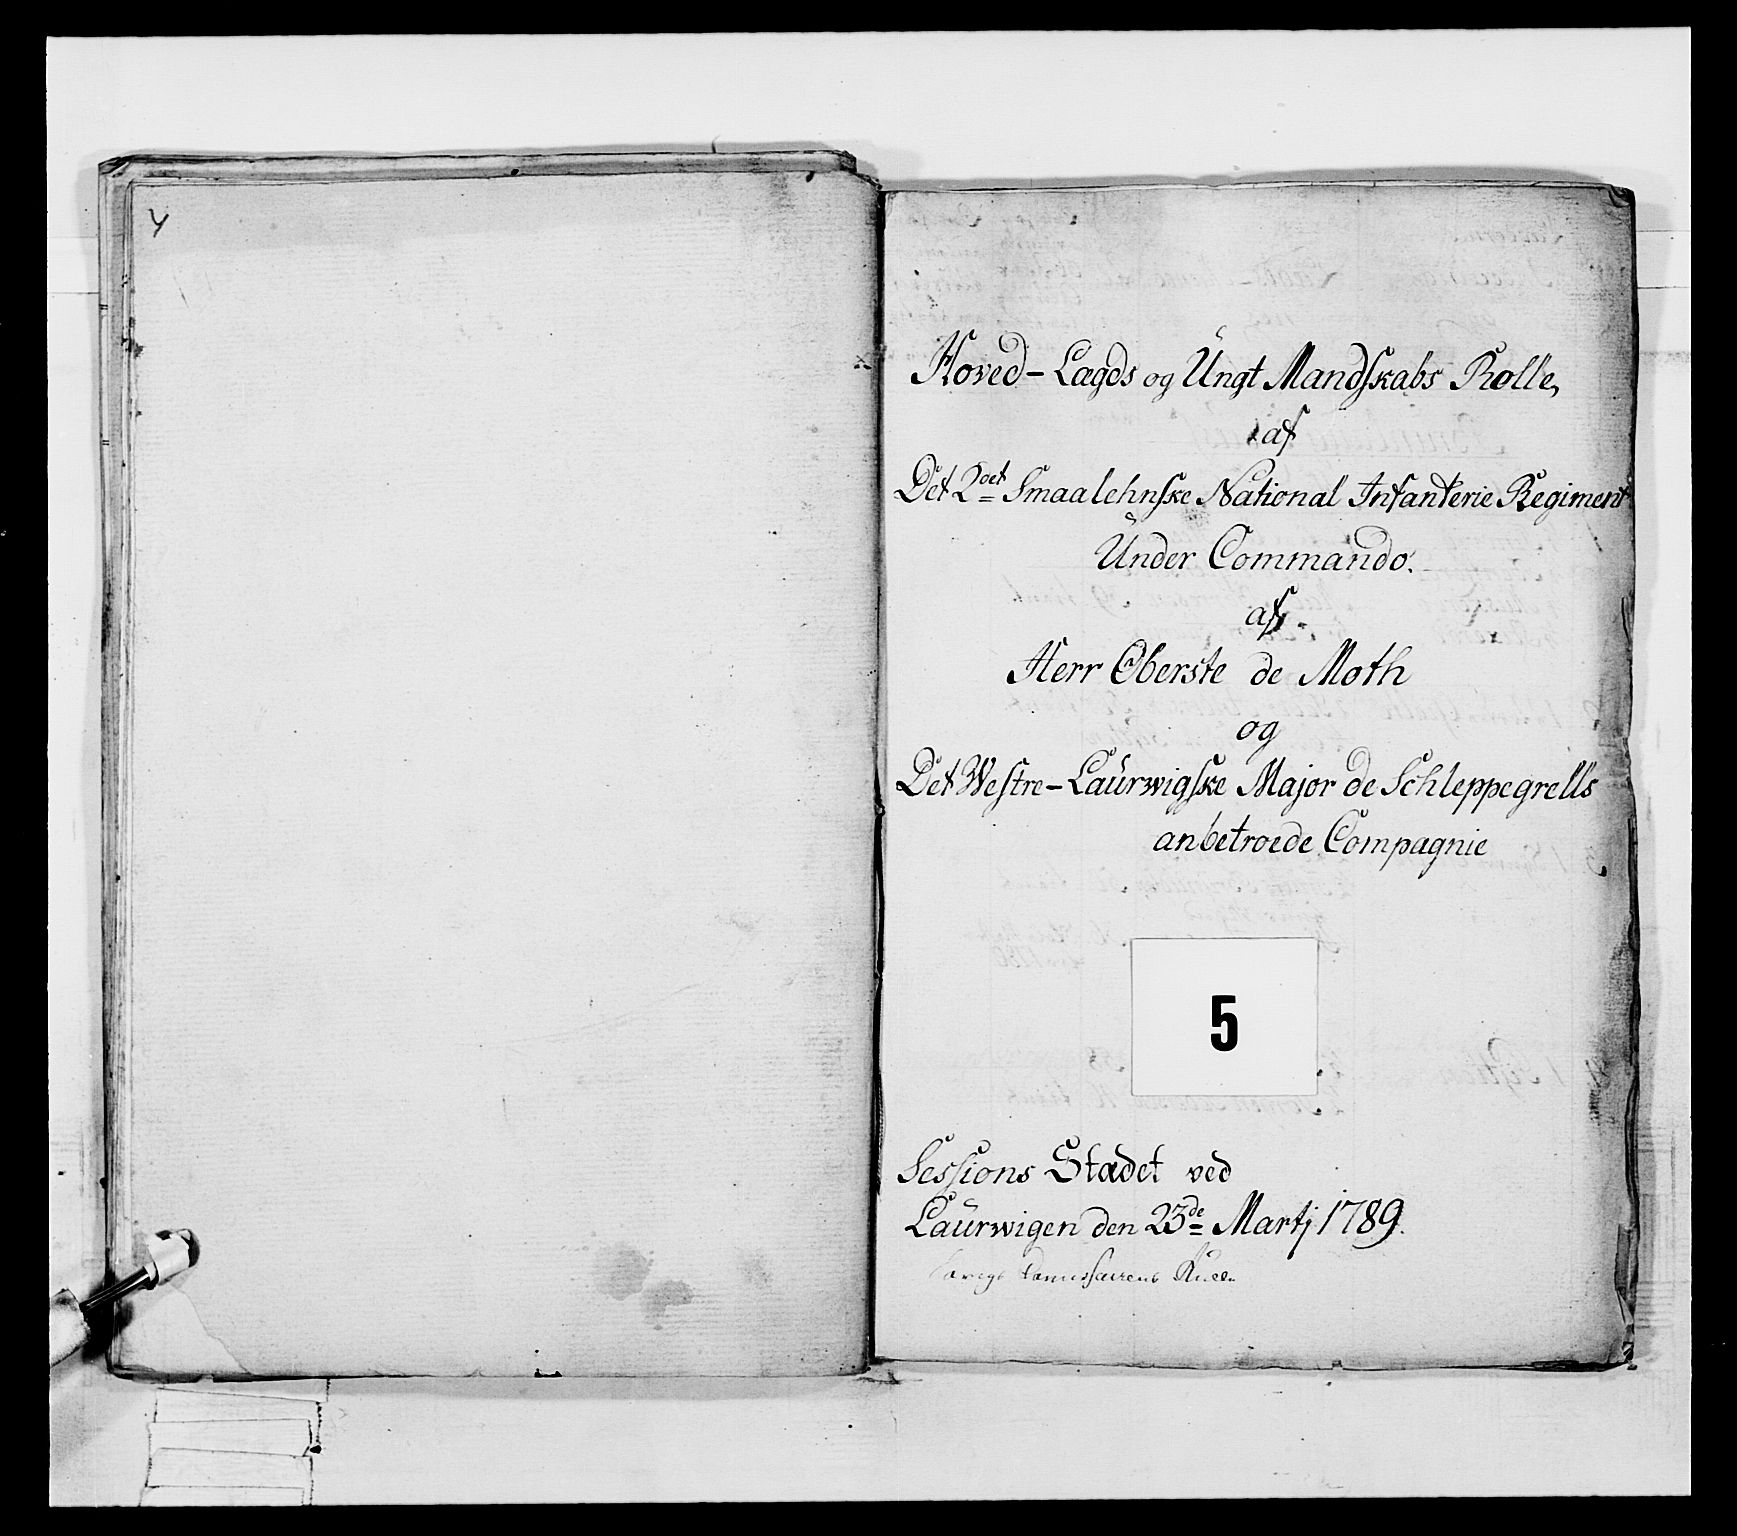 4
Hoved-Lægds og Ungt Mandskabs Rolle,
af
Det 2det Smaalehnske National Infanterie Regiment
Under Commando.
af
Herr Oberste de Moth
og
Det Westre-Laurwigske Major de Schleppegrells
anbetroede Compagnie
5
Sessions Stædet ved
Laurwigen den 23de Martj 1789.